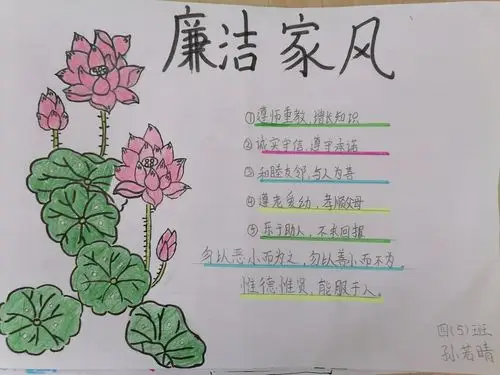 廉洁家风
①遵师重教，增长知识
②诚实守信，遵守承诺
③和睦友邻，与人为善
④尊老爱幼，孝顺父母
⑤乐于助人，不求回报
勿以恶小而为之，勿以善小而不为，
惟德惟贤，能服于人。
四(5)班
孙若晴